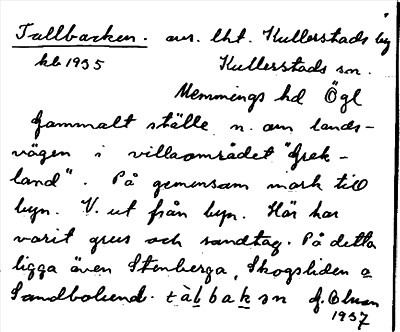 Tallbacken. avs. lht. Kullerstads by
kb 1935 Kullerstads sn.
Memmings hd Ögl
Gammalt ställe n. om lands-
vägen i villaområdet "Grek-
land". På gemensam mark till
byn. V. ut från byn. Här har
varit grus och sandtag. På detta
ligga även Stenberga, Skogsliden o
Sandbolund. tàlbakən G. Olson
1937